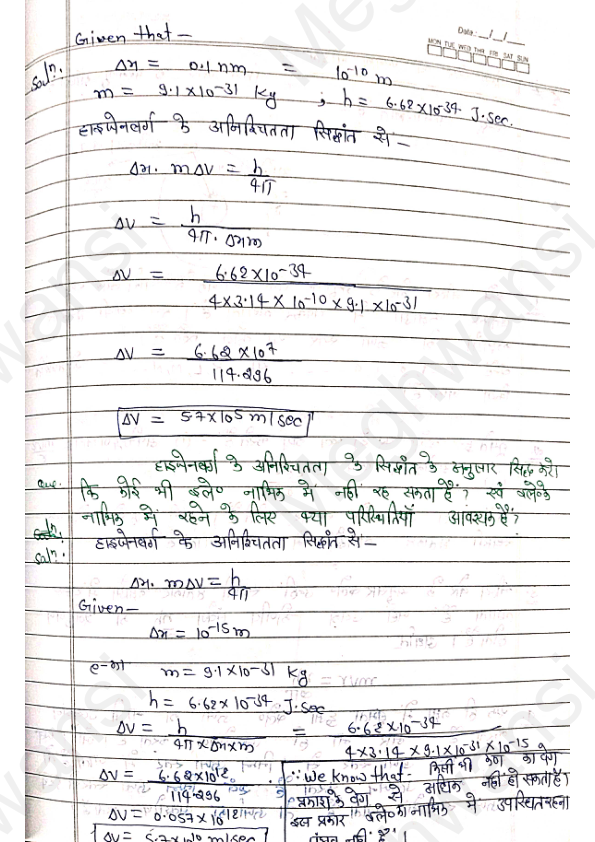 Date:__/__/__
MON TUE WED THR FRI SAT SUN
Given that -
Solⁿ. Δx = 0.1nm = 10⁻¹⁰ m
m = 9.1×10⁻³¹ Kg ; h = 6.62×10⁻³⁴ J.sec.
हाइजेनबर्ग के अनिश्चितता सिद्धांत से -
Δx. mΔV = h/4π
ΔV = h/4π. Δxm
ΔV = 6.62×10⁻³⁴/4×3.14×10⁻¹⁰×9.1×10⁻³¹
ΔV = 6.62×10⁷/114.296
ΔV = 5.7×10⁵ m/sec
Que. हाइजेनबर्ग के अनिश्चितता के सिद्धांत के अनुसार सिद्ध करो
कि कोई भी इले० नाभिक में नहीं रह सकता है? एवं इले०के
नाभिक में रहने के लिए क्या परिस्थितियाँ आवश्यक हैं?
Solⁿ. हाइजेनबर्ग के अनिश्चितता सिद्धांत से -
Δx. mΔV = h/4π
Given-
Δx = 10⁻¹⁵m
e⁻का m = 9.1×10⁻³¹ Kg
h = 6.62×10⁻³⁴ J.sec
ΔV = h/4π×Δx×m = 6.62×10⁻³⁴/4×3.14×9.1×10⁻³¹×10⁻¹⁵
ΔV = 6.62×10¹²/114.296
ΔV = 0.057×10¹²
ΔV = 5.7×10¹⁰ m/sec
∵ we know that- किसी भी कण का वेग
प्रकाश के वेग से अधिक नहीं हो सकता है।
इस प्रकार इले० का नाभिक में उपस्थित रहना
संभव नहीं है।
Meghwansi
Meghwansi